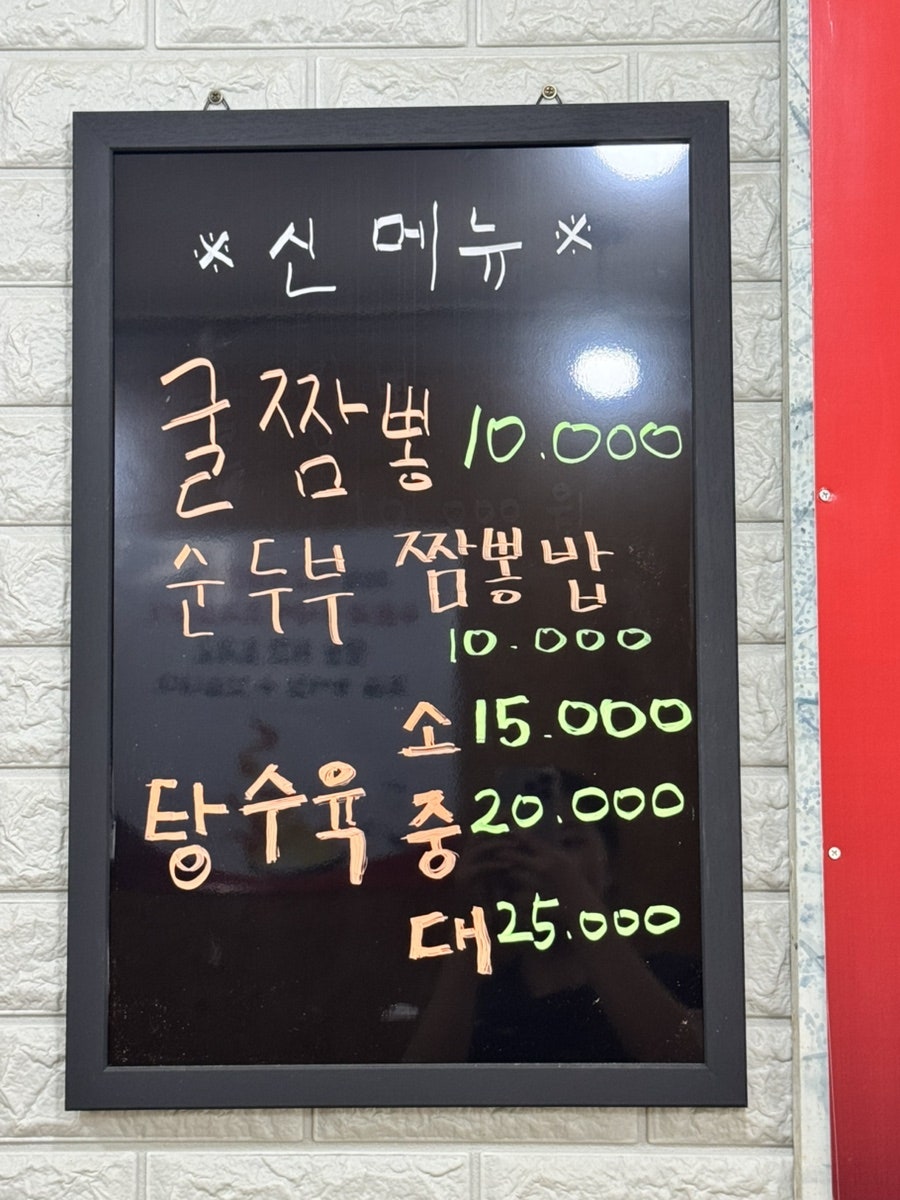 ※ 신 메뉴 ※
굴짬뽕 10.000
순두부 짬뽕밥
10.000
소 15.000
탕수육 중 20.000
대 25.000